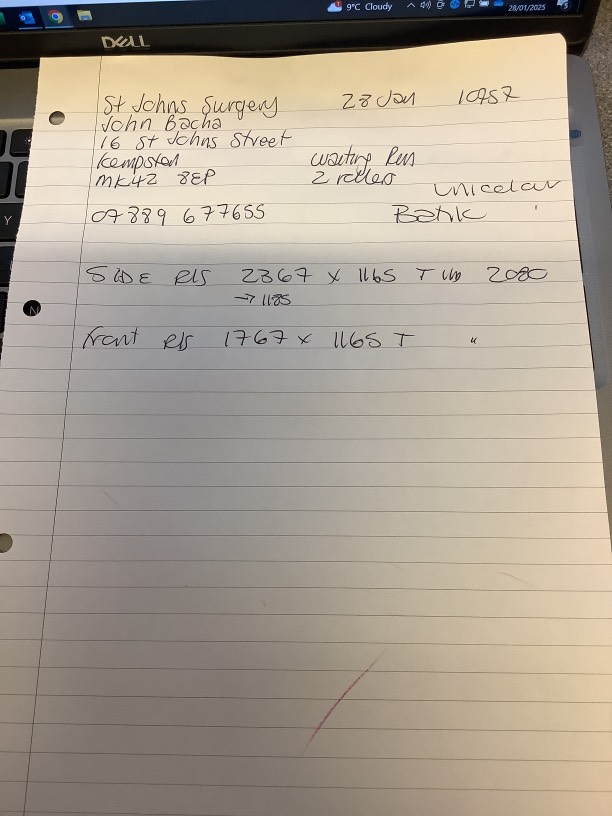 9°C Cloudy
28/01/2025
DELL
Y
N
St Johns Surgery 28 Jan 10457
John Bacha
16 St Johns Street
Kempston waiting Rm
MK42 8EP 2 rollers
Unicolour
07889 677655 Bank
SIDE RIS 2367 x 1165 T 2080
→ 1185
front RIS 1767 x 1165 T "